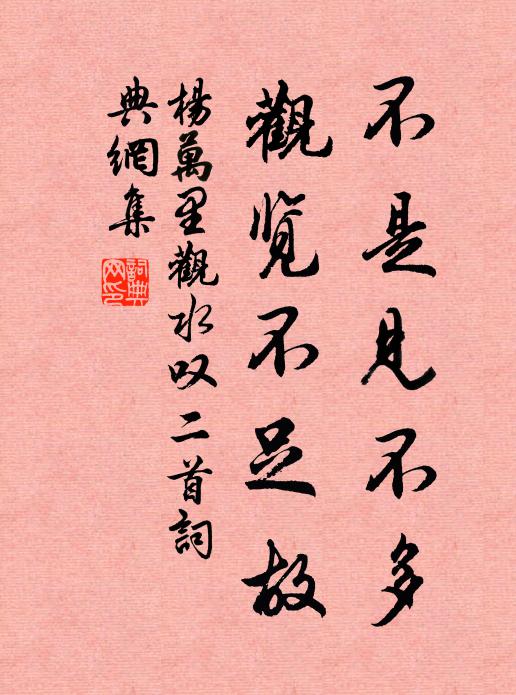 不是見不多
觀览不足故
楊萬里觀水叹二首詞
典網集
詞典网印